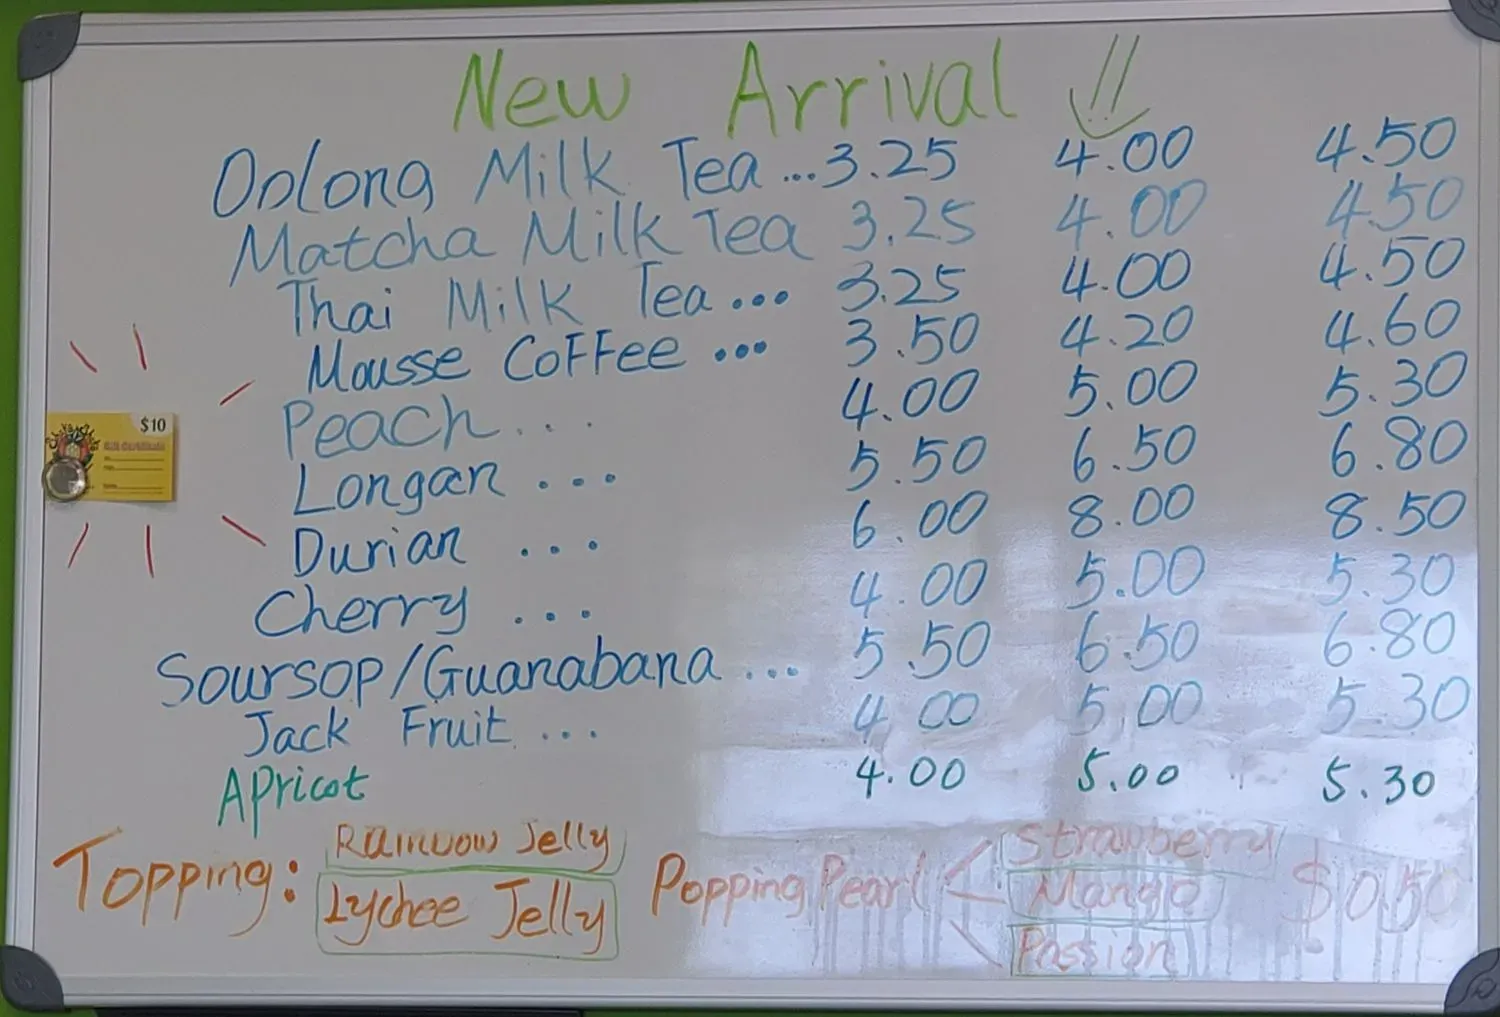 New Arrival
Oolong Milk Tea ... 3.25 4.00 4.50
Matcha Milk Tea 3.25 4.00 4.50
Thai Milk Tea ... 3.25 4.00 4.50
Mousse Coffee ... 3.50 4.20 4.60
Peach ... 4.00 5.00 5.30
Longan ... 5.50 6.50 6.80
Durian ... 6.00 8.00 8.50
Cherry ... 4.00 5.00 5.30
Soursop/Guanabana ... 5.50 6.50 6.80
Jack Fruit ... 4.00 5.00 5.30
Apricot 4.00 5.00 5.30
Topping: Rainbow Jelly
Lychee Jelly
Popping Pearl
Strawberry
Mango
Passion
$0.50
$10
Gift Certificate